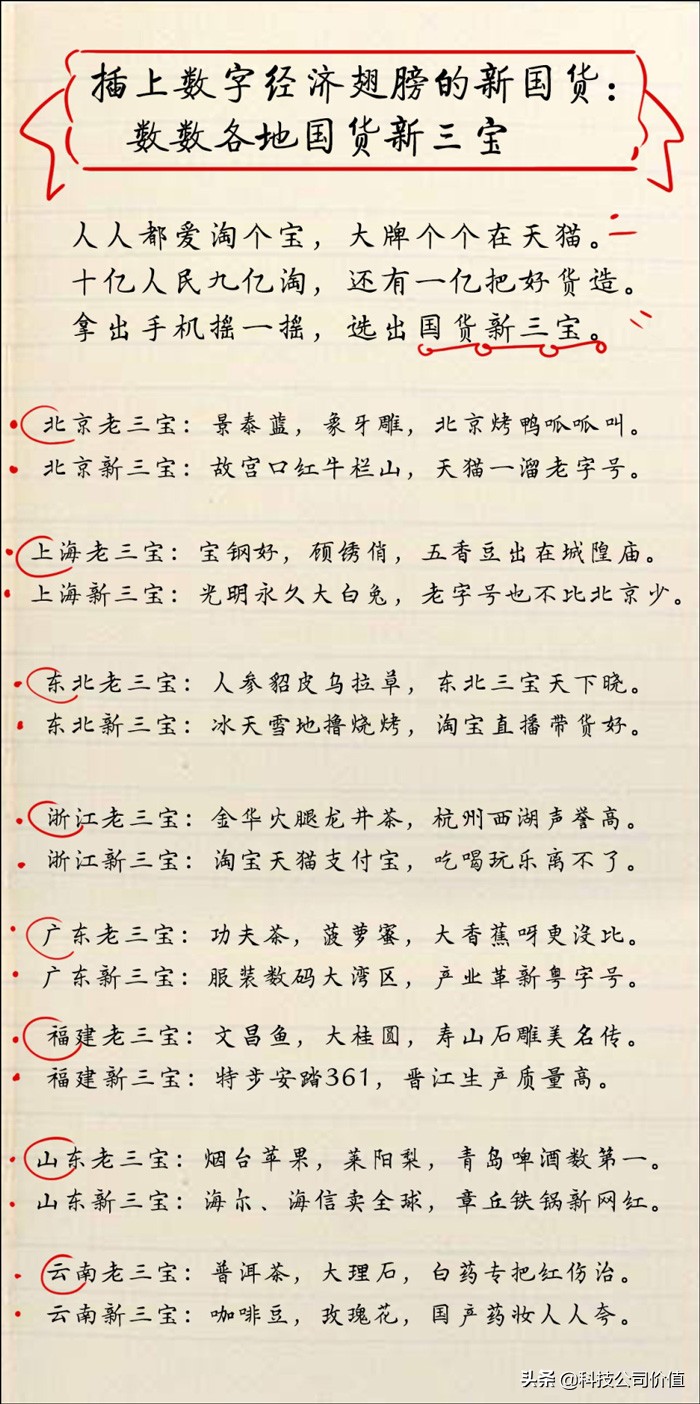 插上数字经济翅膀的新国货：
数数各地国货新三宝
人人都爱淘个宝，大牌个个在天猫。
十亿人民九亿淘，还有一亿把好货造。
拿出手机摇一摇，选出国货新三宝。
北京老三宝：景泰蓝，象牙雕，北京烤鸭呱呱叫。
北京新三宝：故宫口红牛栏山，天猫一溜老字号。
上海老三宝：宝钢好，顾绣俏，五香豆出在城隍庙。
上海新三宝：光明永久大白兔，老字号也不比北京少。
东北老三宝：人参貂皮乌拉草，东北三宝天下晓。
东北新三宝：冰天雪地撸烧烤，淘宝直播带货好。
浙江老三宝：金华火腿龙井茶，杭州西湖声誉高。
浙江新三宝：淘宝天猫支付宝，吃喝玩乐离不了。
广东老三宝：功夫茶，菠萝蜜，大香蕉呀更没比。
广东新三宝：服装数码大湾区，产业革新粤字号。
福建老三宝：文昌鱼，大桂圆，寿山石雕美名传。
福建新三宝：特步安踏361，晋江生产质量高。
山东老三宝：烟台苹果，莱阳梨，青岛啤酒数第一。
山东新三宝：海尔、海信卖全球，章丘铁锅新网红。
云南老三宝：普洱茶，大理石，白药专把红伤治。
云南新三宝：咖啡豆，玫瑰花，国产药妆人人夸。
头条 @科技公司价值